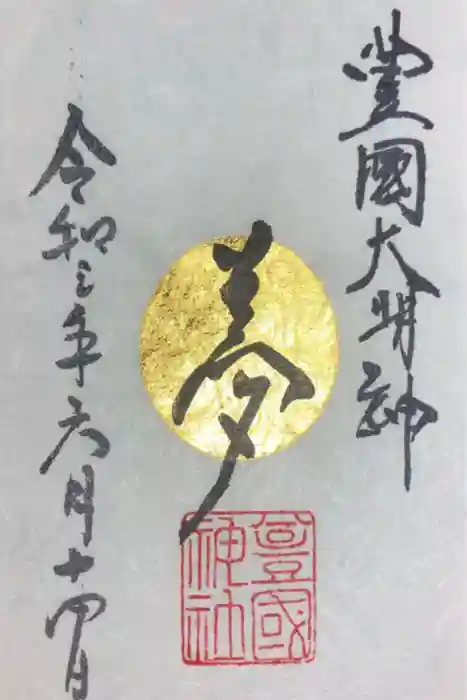 豐國大明神
夢
豐國
神社
令和三年六月十四日